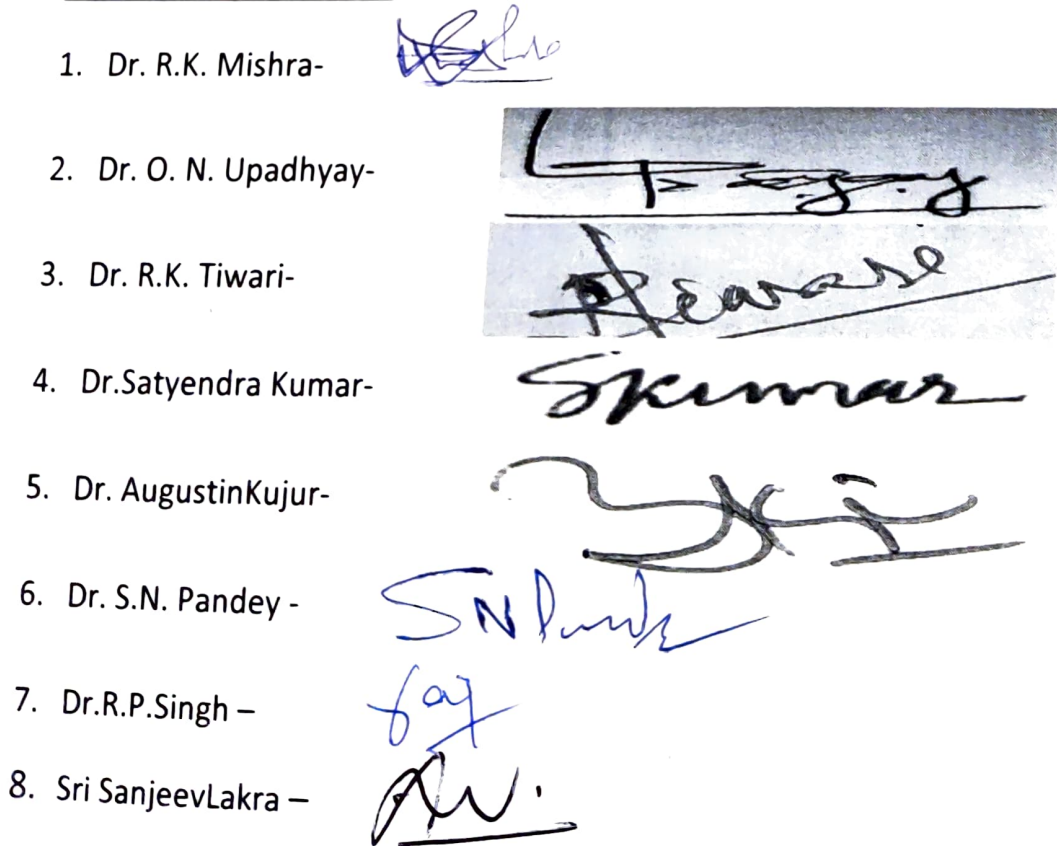 1. Dr. R.K. Mishra-
2. Dr. O. N. Upadhyay-
3. Dr. R.K. Tiwari-
4. Dr.Satyendra Kumar- Skumar
5. Dr. AugustinKujur-
6. Dr. S.N. Pandey - SN
7. Dr.R.P.Singh –
8. Sri SanjeevLakra –